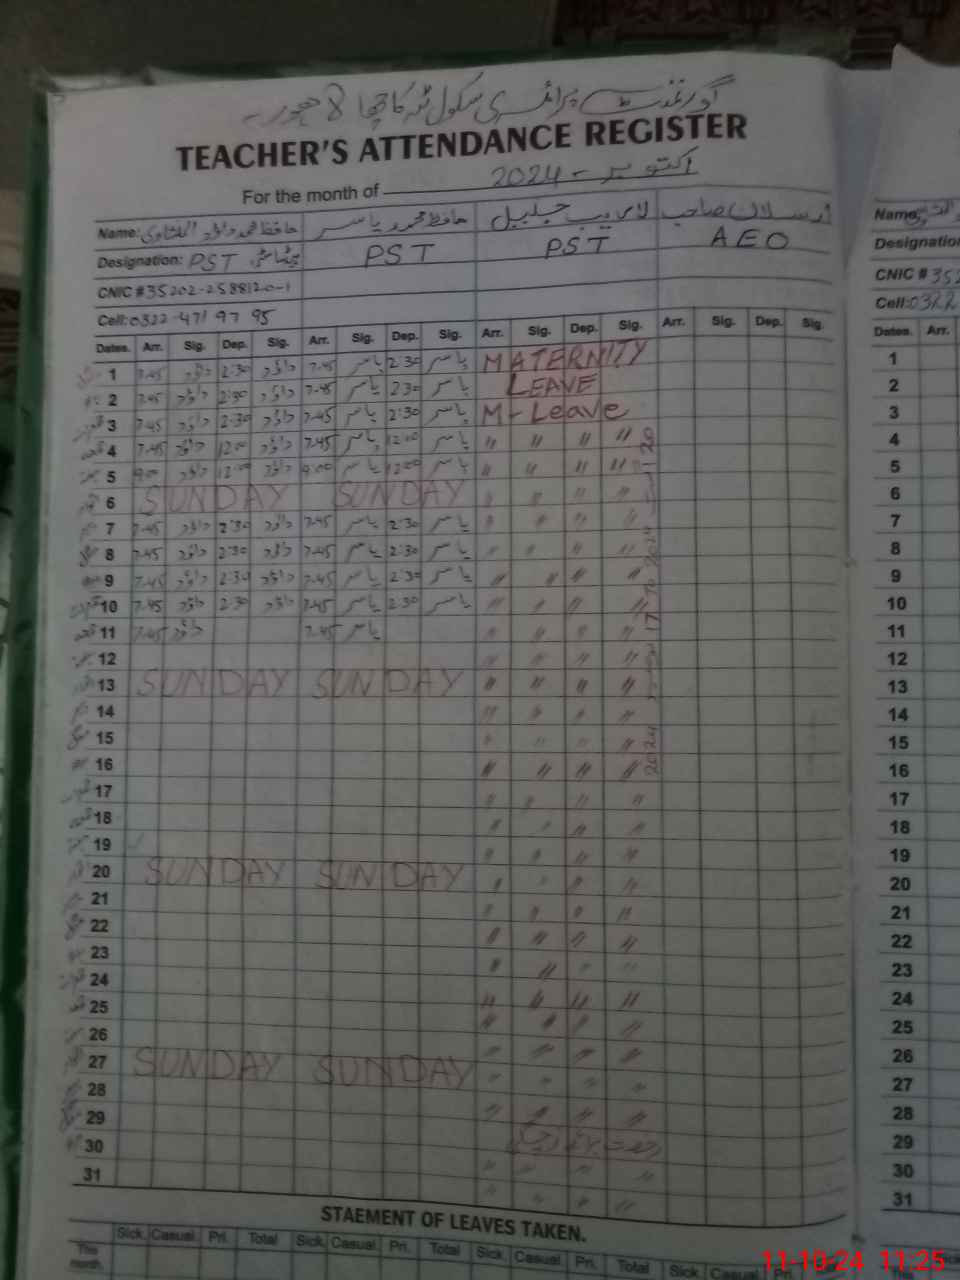 گورنمنٹ پرائمری سکول ٹھہ کاچھا لاہور۔
TEACHER'S ATTENDANCE REGISTER
For the month of اکتوبر - 2024
Name: حافظ محمد داؤد حافظ محمد یاسر لاریب جلیل ارسلان صاحب
Designation: PST PST PST AEO
CNIC # 35202-2588120-1
Cell: 0322-471 97 95
Dates. Arr. Sig. Dep. Sig. Arr. Sig. Dep. Sig. Arr. Sig. Dep. Sig. Arr. Sig. Dep. Sig.
1 7.45 داؤد 2:30 داؤد 7.45 یاسر 2:30 یاسر MATERNITY
2 7.45 داؤد 2:30 داؤد 7.45 یاسر 2:30 یاسر LEAVE
3 7.45 داؤد 2:30 داؤد 7.45 یاسر 2:30 یاسر M-Leave
4 7.45 داؤد 12:00 داؤد 7.45 یاسر 12:00 یاسر " " " "
5 9:00 داؤد 12:00 داؤد 9:00 یاسر 12:00 یاسر " " " "
6 SUNDAY SUNDAY " " " "
7 7.45 داؤد 2:30 داؤد 7.45 یاسر 2:30 یاسر " " " "
8 7.45 داؤد 2:30 داؤد 7.45 یاسر 2:30 یاسر " " " "
9 7.45 داؤد 2:30 داؤد 7.45 یاسر 2:30 یاسر " " " "
10 7.45 داؤد 2:30 داؤد 7.45 یاسر 2:30 یاسر " " " "
11 7.45 داؤد 7.45 یاسر " " " "
12 " " " "
13 SUNDAY SUNDAY " " " "
14 " " " "
15 " " " "
16 " " " "
17 " " " "
18 " " " "
19 " " " "
20 SUNDAY SUNDAY " " " "
21 " " " "
22 " " " "
23 " " " "
24 " " " "
25 " " " "
26 " " " "
27 SUNDAY SUNDAY " " " "
28 " " " "
29
30 " " " "
31 " " " "
STAEMENT OF LEAVES TAKEN.
Sick. Casual. Pri. Total Sick. Casual. Pri. Total Sick. Casual. Pri. Total Sick. Casual. Pri.
This month.
Name:
Designation
CNIC # 352
Cell: 0322
Dates. Arr.
1
2
3
4
5
6
7
8
9
10
11
12
13
14
15
16
17
18
19
20
21
22
23
24
25
26
27
28
29
30
31
11-10-24 11:25